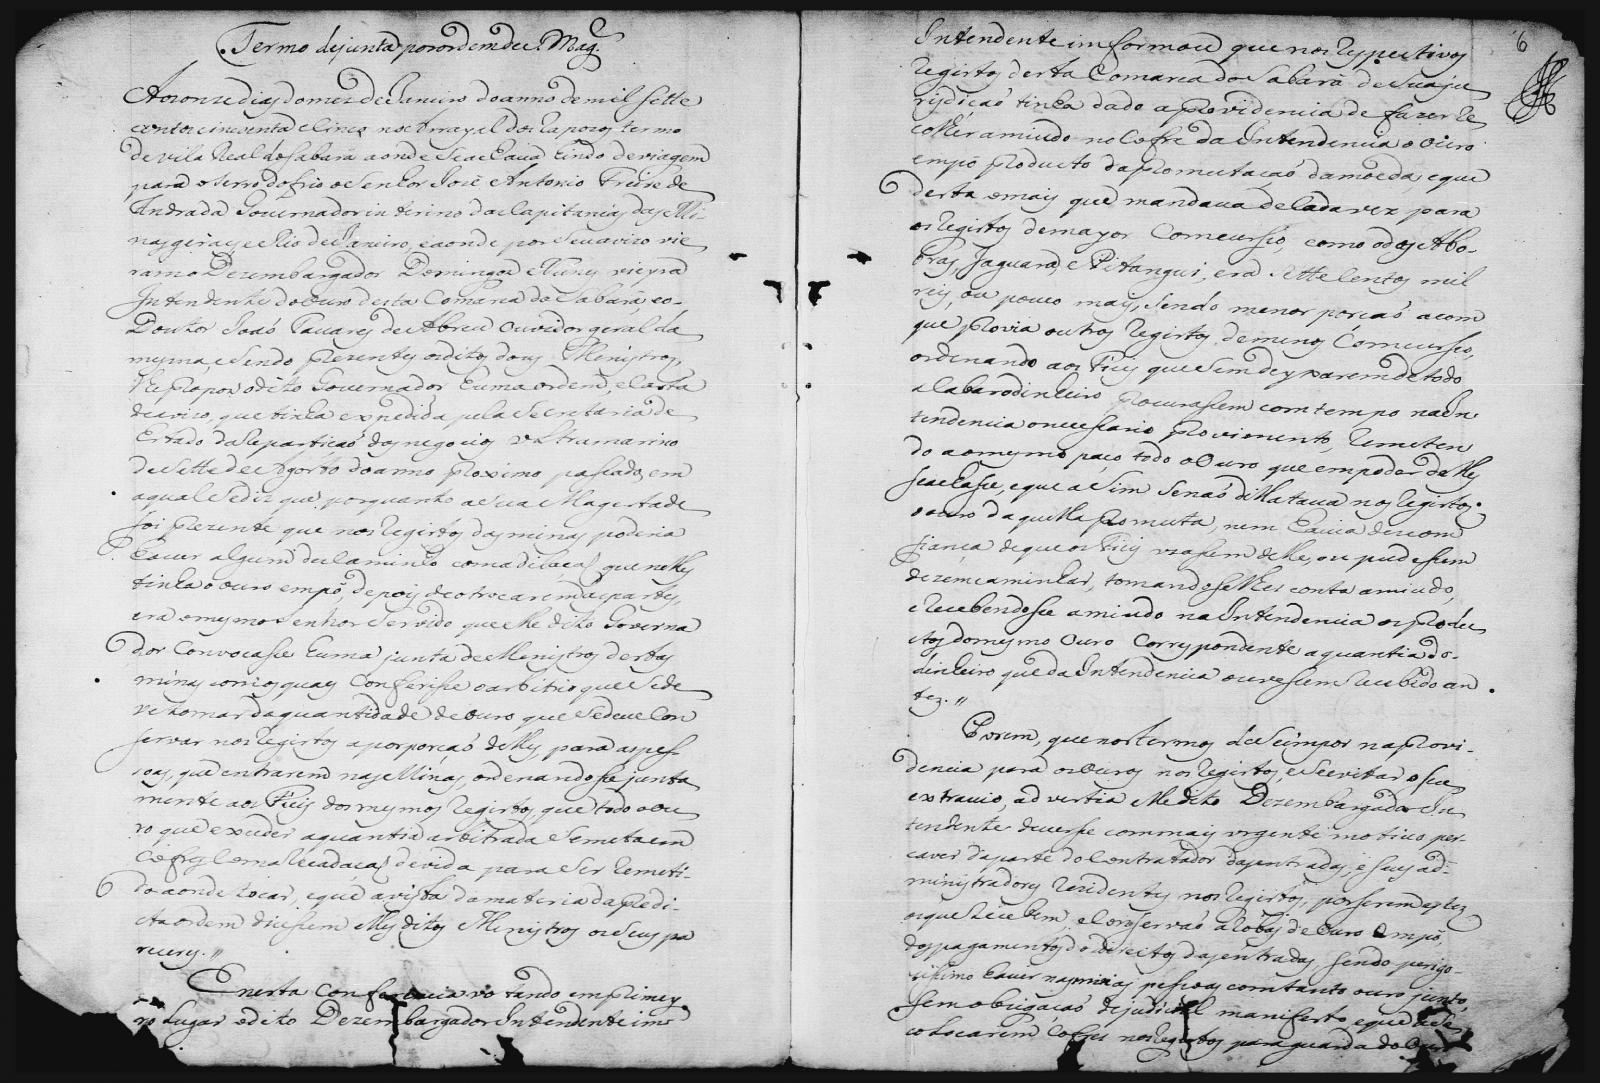 Termo dejunta porordemdeS. Mag.e
Aoronze dias domez deJaneiro doanno demil sette
centos cincoenta e Cinco no Arrayal dos Raposos termo
devila Real doSabara aonde Seachava vindo deviagem
para oSerro dofrio oSenhor Jozê Antonio Freire de
Andrada Governador interino dacapitanias das Mi-
nas geraes e Rio deJaneiro, eaonde por Seu avizo vie
ramo Dezembargador Domingos Nunes vieyra
Intendente do ouro desta Comarca do Sabara, eo-
Doutor Joaõ Tavares de Abreu ouvidor geral da
mesma, e Sendo prezentes osditos dous Menistros,
lhe propos odito Governador huma ordem, e carta
de avizo, que tinha expedida pela Secretaria de
Estado da Repartiçaõ dos negocios vltramarino
de Sette de Agosto do anno proximo passado, em
aqual Sediz que porquanto a Sua Magestade
foi prezente que nos Registos das minas poderia
haver algum descaminho coma dilaçaõ que nelles
tinha o ouro empó, depois de otrocarem as partes,
era omesmo Senhor Servido que elle dito Governa
dor Convocasse huma junta de Menistros destas
minas comosquaes Conferisse oarbitrio que Sede
ve tomar daquantidade de ouro que Sedeve Con
servar nos Registos aporporçaõ delles para as pes
soas, que entrarem nas Minas, ordenandosse junta
mente aos Fieis dos mesmos Registos, que todo o ou
ro que exceder aquantia arbitrada Semeta em
Cofres Coma Recadaçaõ devida para Ser Remeti-
do aonde tocar, eque avista da materia da predi-
cta ordem dicessem elles ditos Menistros os Seus pa
receres.//
Enesta Conferencia votando emprimey
ro Lugar odito Dezembargador Intendente im
6
Intendente imformou que nos Respectivos
Registos desta Comarca do Sabara de Sua ju
risdiçaõ tinha dado aprovidencia de fazer Re
colher amiudo no Cofre da Intendencia o ouro
empó producto da promutaçaõ da moeda, e que
desta o mais que mandava de Cada vez para
os Registos demayor Comcursso, como o dos Abo-
bras, Jaguara, e Pitangui, era Sette Centos mil
reis, ou pouco mais, Sendo menor porçaõ acom
que provia outros Registos demenos Comcursso,
ordenando aos Fieis que Sem deyxarem de todo
alabarodinheiro procurassem com tempo na In
tendencia o necessario provimento, Remeten
do ao mesmo paço todo o ouro que empoder delles
seachasse, e que a Sim Senaõ dilatava nos Registos
o ouro daquella promuta, nem havia descom
fiança de que os Fieis vzassem delle, ou pudessem
dezemcaminhar, tomandoselhes conta amiudo,
e Recebendosse amiudo na Intendencia os produ
ctos do mesmo ouro Correspondente aquantia do-
dinheiro que da Intendencia ouvessem Recebido an
tez.//
Porem, que nos termos de Seimpor na provi-
dencia para os ouros nos Registos, e Sevitar o Seu
extravio, advertia elle dito Dezembargador In
tendente deversse commais vrgente motivo per
caver daparte do Contratador das entradas, e Seus ad-
ministradores Rezidentes nos Registos, por Serem estes
os que Recebem e Conservaõ a Robas de ouro empó,
dos pagamentos do directos das entradas, sendo perigo-
sissimo haver naminias pessoas comtanto ouro junto,
sem obrigaçaõ dejudicial manifesto, eque da Se
colocarem Cofres nos Registos paraguarda do ouro